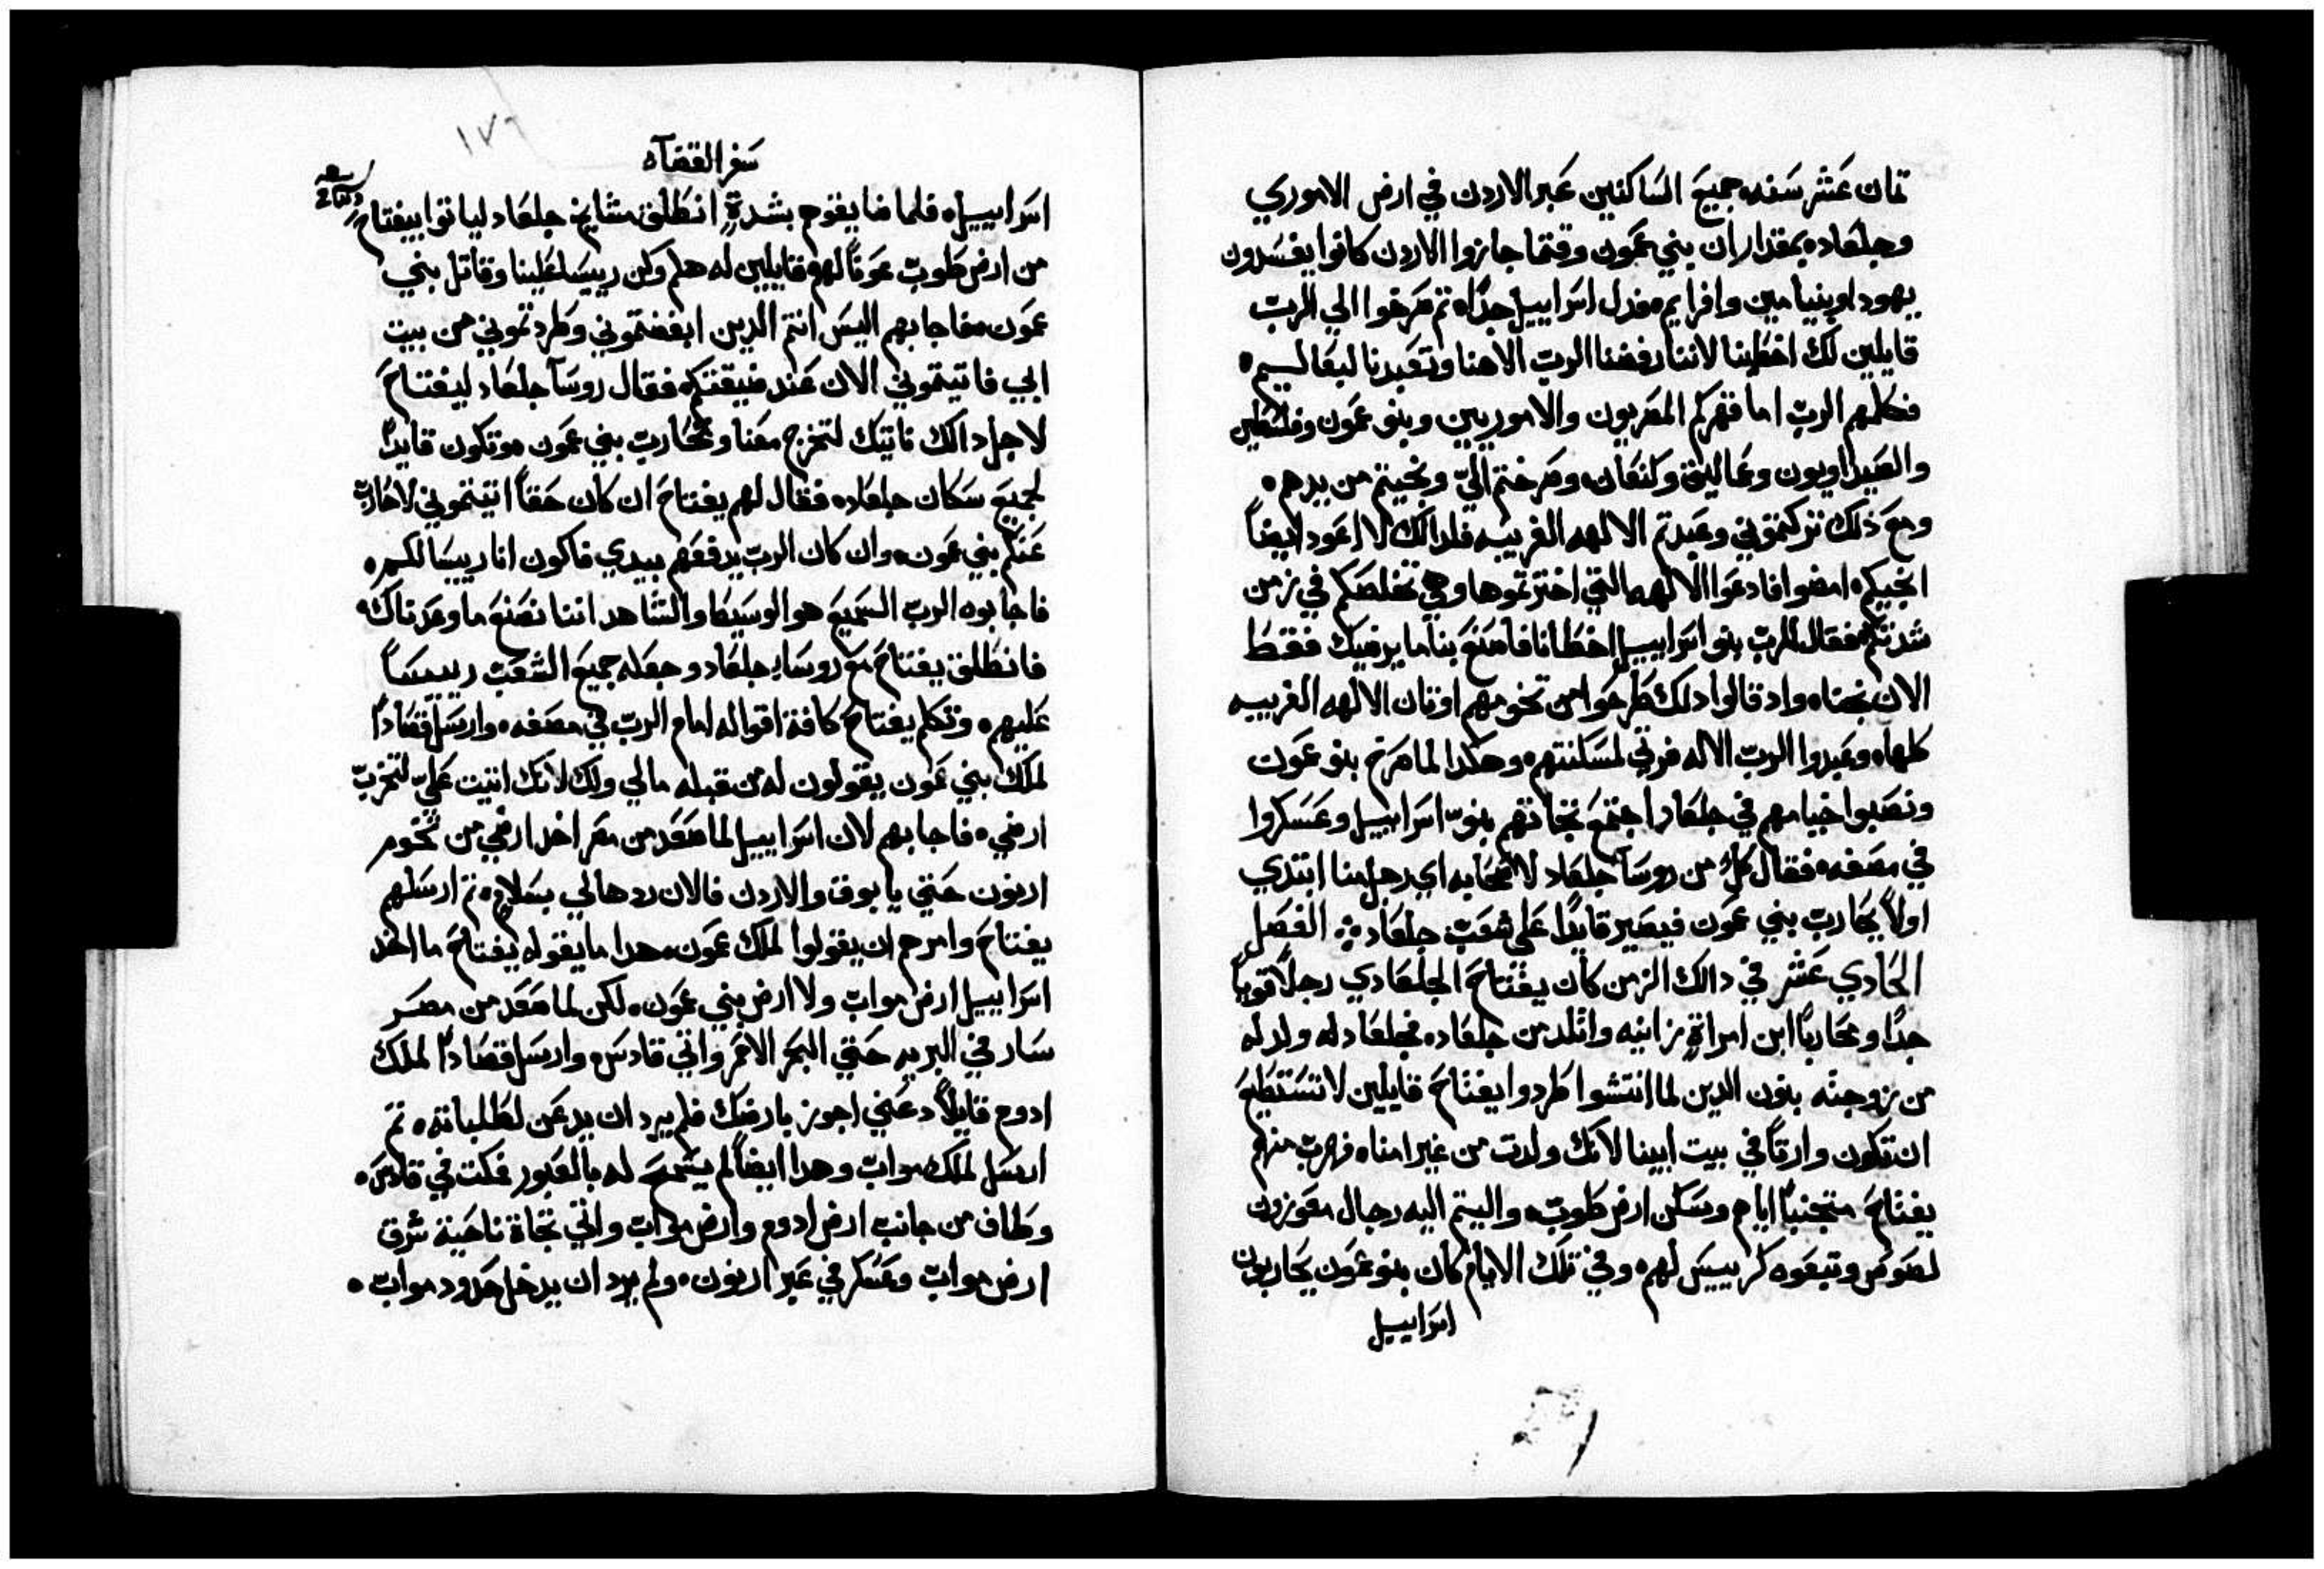 تمان عَشر سَنه جميعَ السَاكنين عَبر الاردن في ارض الاموري
وجلعَاد بمقدار ان بني عمَون وقتما جازوا الاردن كانوا يفسَدون
يهودا وبنيامين وافرايم فذل اسَراييل جدًا ثم صَرخوا الي الربّ
قايلين لك اخطَينا لاننا رفضنا الربّ الاهنا وتعَبدنا لبعَاليم
فكلمهم الربّ اما قهركم المصَريون والاموريين وبنو عمَون وفلسَطين
والصَيداويون وعَماليق وكنعَان وصَرختم اليّ ونجيتم من يدهم
ومعَ ذلك تركتموني وعَبدتم الالهه الغريبه فلدالك لا اعَود ايضاً
انجيكم امضوا فادعَوا الالهه التي اخترتموها وهي تخلصَكم في زمن
شدتكم فقال للربّ بنو اسَراييل اخطَانا فاصَنعَ بنا ما يرضيك فقط
الان نجناه واد قالوا دلك طَرحَوا من تخومهم اوتان الالهه الغريبه
كلها وعَبدوا الربّ الاله فرتي لمسَكنتهم وهكدا لما صَرخ بنو عمَون
ونصَبوا خيامهم في جلعَاد اجتمعَ تجاتهم بنوّ اسَراييل وعَسَكروا
في مصَفه فقال كلٌ من روسَا جلعَاد لاصَحَابه اي رجل منا ابتدي
اولاً يحَارب بني عمَون فيصَير قايدًا عَلي شعَبّ جلعَاد الفصَل
الحَادي عَشر في دالك الزمن كان يفتاحَ الجلعَادي رجلاً قوياً
جدًا ومحَارباً ابن امراةٍ زانيه واتلد من جلعَاد فجلعَاد له ولد له
من زوجته بنون الدين لما انتشوا طَردوا يفتاحَ قايلين لا تسَتطَيعَ
ان تكون وارتاً في بيت ابينا لانك ولدت من غير امناه فهربّ منهم
يفتاحَ متجنباً اياهم وسَكن ارض طَوبّ واليتم اليه رجال معَوزون
لصَوصَ وتبعَوه كرييسَ لهم وفي تلك الايام كان بنو عمَون يحَاربون
اسَراييل
١٧٦
سَفر القضاه
اسَراييل فلما ضايقوهم بشدةٍ انطَلق مشايخ جلعَاد لياتوا بيفتاح
من ارض طَوبّ عَوناً لهم قايلين له هلم وكن رييسَاً عَلينا وقاتل بني
عمَون فاجابهم اليسَ انتم الدين ابغضتموني وطَردتموني من بيت
ابي فاتيتموني الان عَند ضيقتكم فقال روسَا جلعَاد ليفتاحَ
لاجل دالك ناتيك لتخرج معَنا وتحَاربّ بني عمَون وتكون قايداً
لجميعَ سَكان جلعَاد فقال لهم يفتاحَ ان كان حَقاً اتيتموني لاحَاربّ
عَنكم بني عمَون وان كان الربّ يدفعَهم بيدي فاكون انا رييسَا لكم
فاجابوه الربّ السَميعَ هو الوسَيطَ والشاهد اننا نصَنعَ ما وعَدناك
فانطَلق يفتاحَ معَ روسَا جلعَاد وجعَله جميعَ الشعَبّ رييسَاً
عَليهم وتكلم يفتاحَ كافة اقواله امام الربّ في مصَفه وارسَل قصَادًا
لملك بني عمَون يقولون له من قبله مالي ولك لانك اتيت عَليّ لتخربّ
ارضي فاجابهم لان اسَراييل لما صَعَد من مصَر اخد ارضي من تخوم
ارنون حَتي يابوق والاردن فالان ردها لي بسَلام تم ارسَلهم
يفتاحَ وامرهم ان يقولوا لملك عمَون هدا ما يقوله يفتاحَ ما اخد
اسَراييل ارض موابّ ولا ارض بني عمَون لكن لما صَعَد من مصَر
سَار في البريه حَتي البحَر الاحمَر واتي قادسَ وارسَل قصَادًا لملك
ادوم قايلاً دعَني اجوز بارضك فلم يرد ان يدعَن لطَلباته تم
ارسَل لملك موابّ وهدا ايضاً لم يسَمحَ له بالعَبور فمكت في قادسَ
وطَاف من جانب ارض ادوم وارض موابّ واتي تجاة ناحَية شرق
ارض موابّ وعَسَكر في عَبر ارنون ولم يرد ان يدخل حَدود موابّ